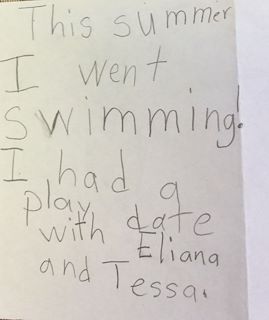 This summer
I went
swimming!
I had a
play date
with Eliana
and Tessa.